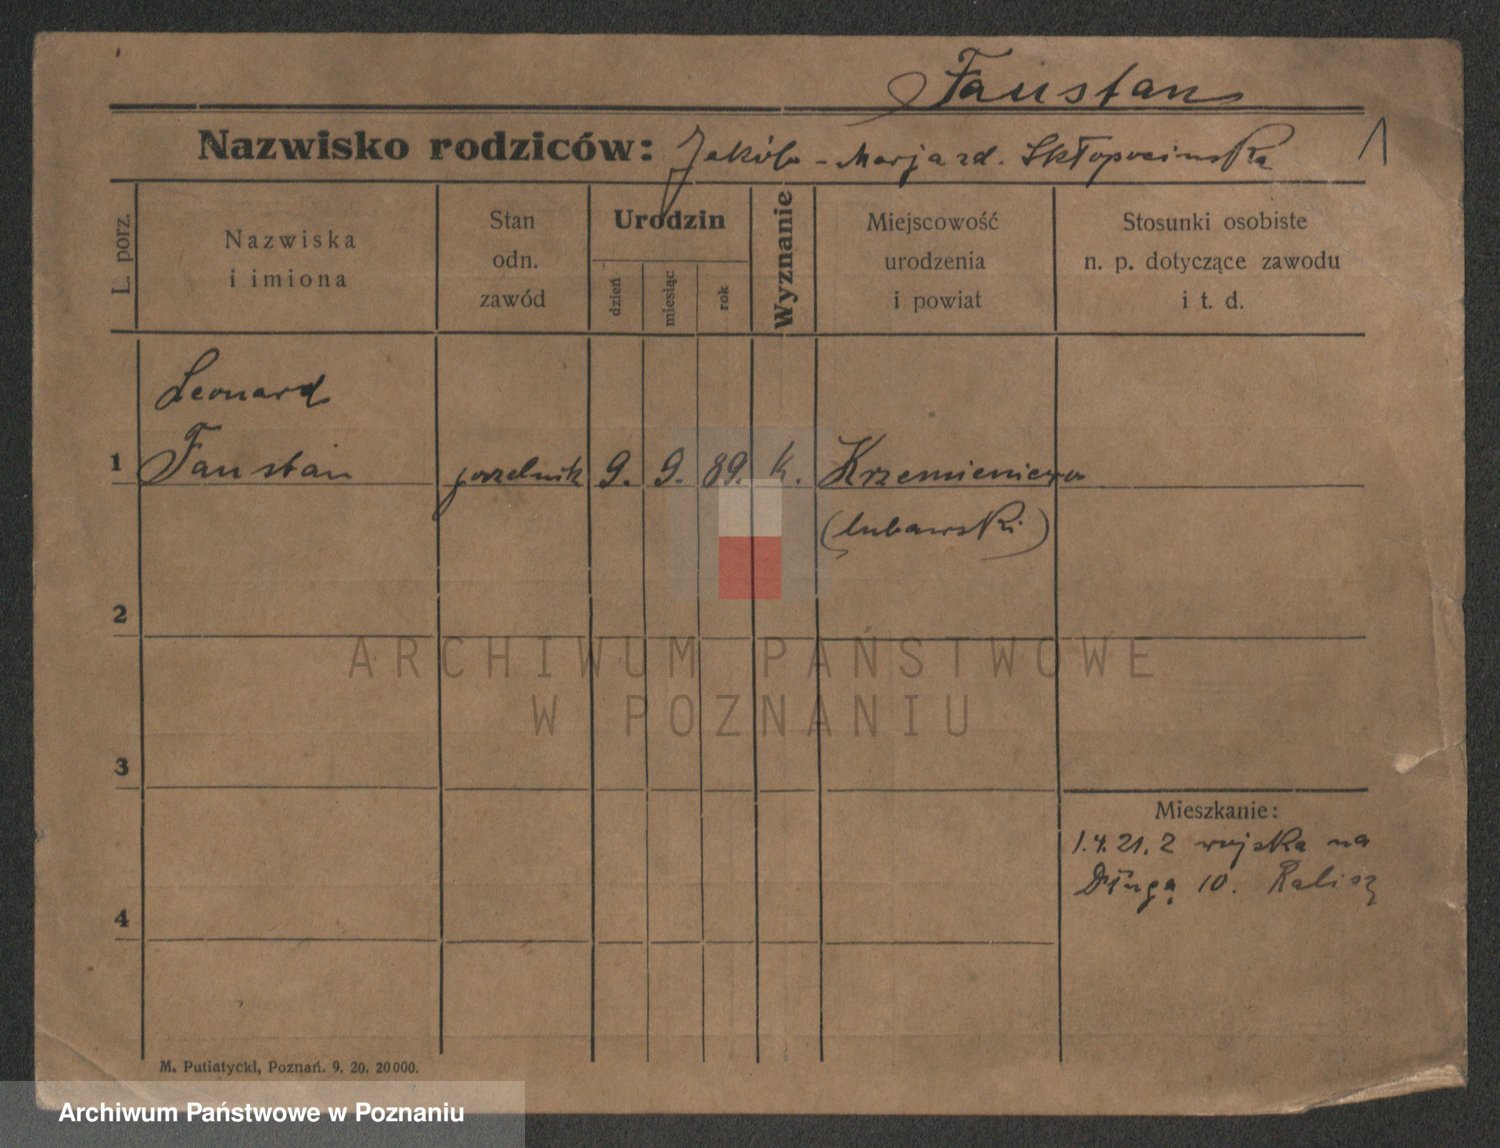 Faustan
Nazwisko rodziców: Jakób - Marja zd.
1
L. porz.
Nazwiska
i imiona
Stan
odn.
zawód
Urodzin
dzień
miesiąc
rok
Wyznanie
Miejscowość
urodzenia
i powiat
Stosunki osobiste
n. p. dotyczące zawodu
i t. d.
Leonard
1 Faustan gorzelnik 9. 9. 89. k. Krzemieniewo
(lubawski)
2
3
4
Mieszkanie:
1.4.21. z wojska na
Długą 10. Kalisz
M. Putiatycki, Poznań. 9. 20. 20000.
ARCHIWUM PAŃSTWOWE
W POZNANIU
Archiwum Państwowe w Poznaniu